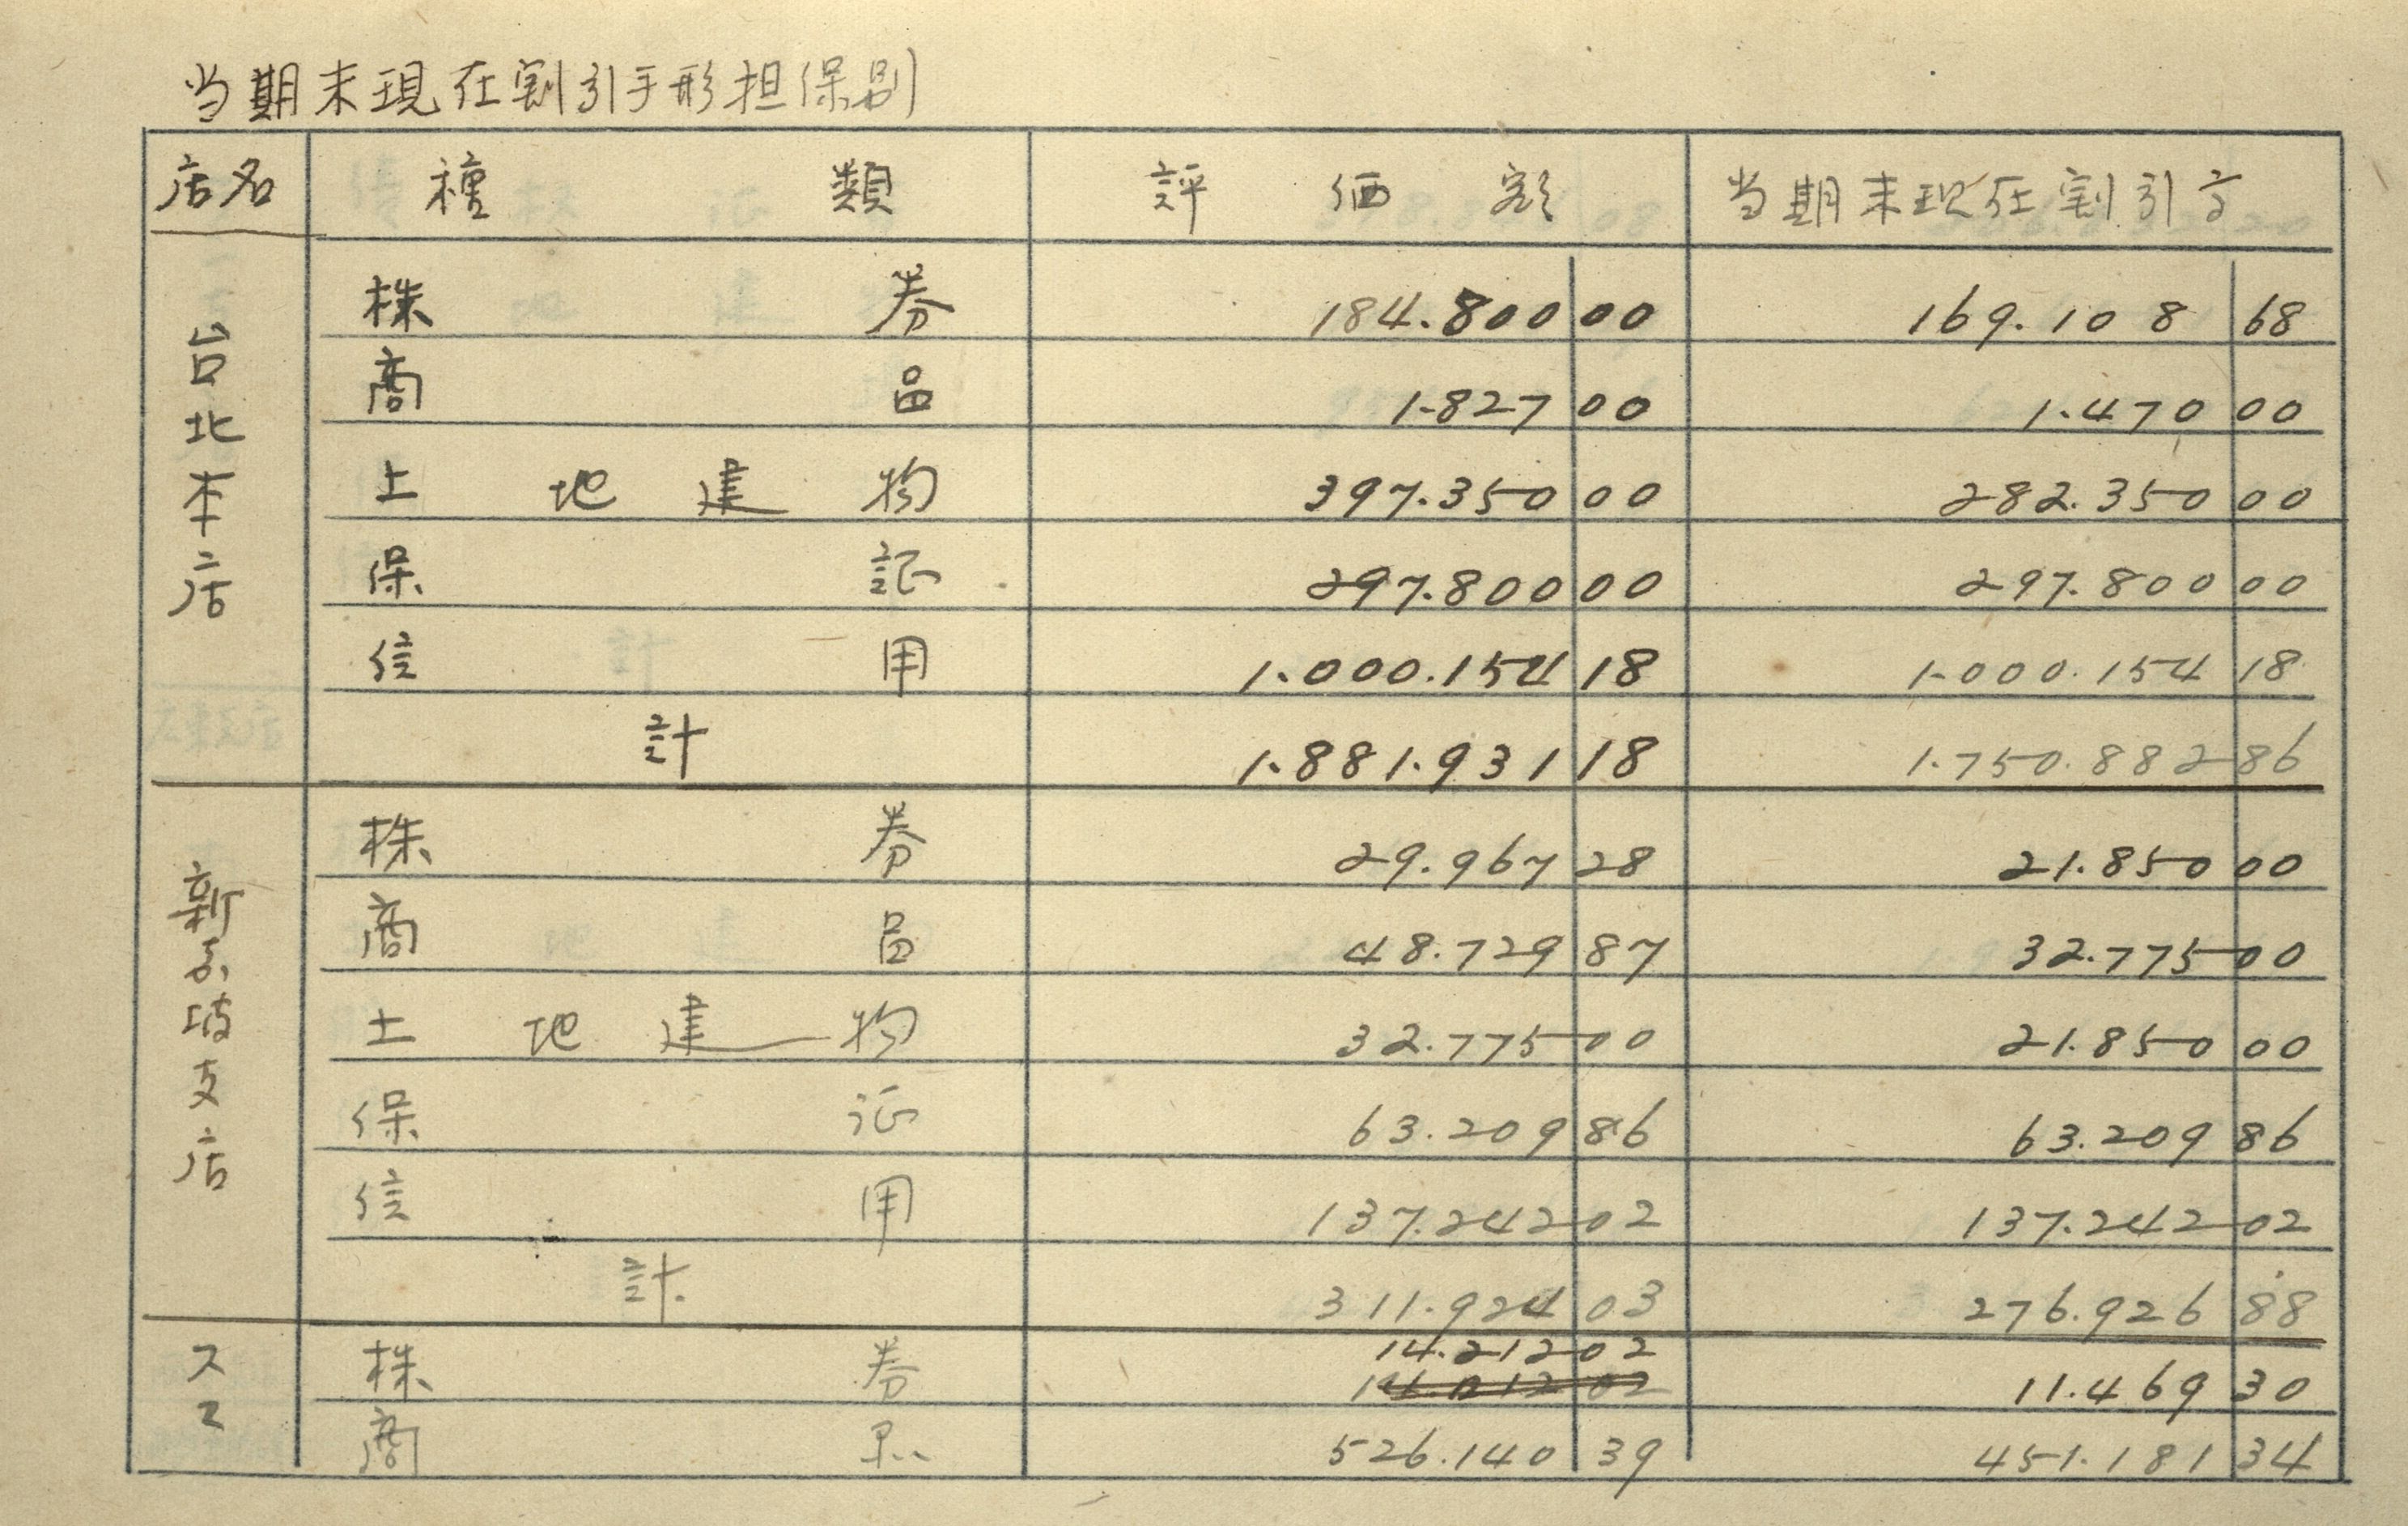 当期末現在割引手形担保別
店名 種類 評価額 当期末現在割引高
台北本店
株券 184.800 00 169.108 68
商品 1.827 00 1.470 00
土地建物 397.350 00 282.350 00
保証 297.800 00 297.800 00
信用 1.000.154 18 1.000.154 18
計 1.881.931 18 1.750.882 86
新嘉坡支店
株券 29.967 28 21.850 00
商品 48.729 87 32.775 00
土地建物 32.775 00 21.850 00
保証 63.209 86 63.209 86
信用 137.242 02 137.242 02
計 311.924 03 276.926 88
スマ
14.212 02
株券 11.469 30
商品 526.140 39 451.181 34